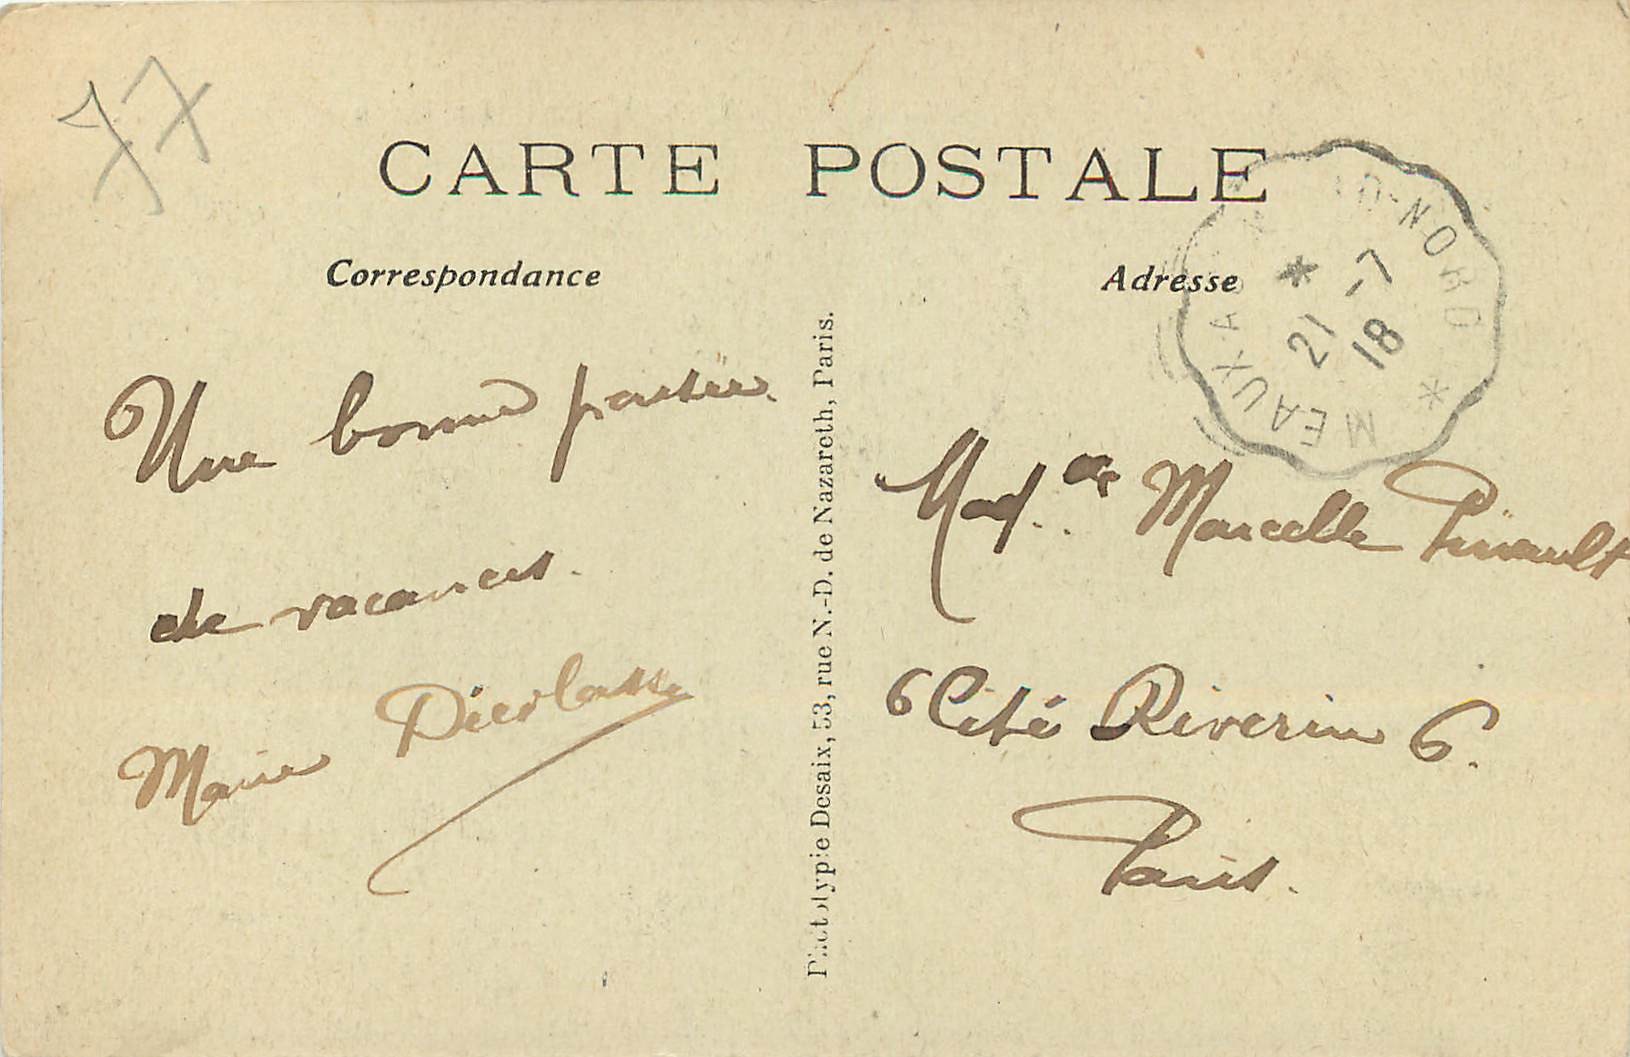 77
CARTE POSTALE
Correspondance
Adresse
MEAUX A D-NORD
21 -7
18
Une bonne partie
de vacances.
Marie
Phototypie Desaix, 53, rue N.-D. de Nazareth, Paris.
Mad.elle Marcelle Pinault
6 Cité Riverin 6.
Paris.